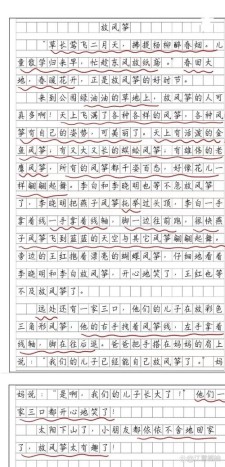 放风筝
“草长莺飞二月天,拂堤杨柳醉春烟。儿
童散学归来早,忙趁东风放纸鸢。”春回大
地,春暖花开,正是放风筝的好时节。
来到公园绿油油的草地上,放风筝的人可
真多啊!天上飞满了各种各样的风筝,各种风
筝有自己的姿态,可美丽了。天上有活泼的金
鱼风筝,有又大又长的蜈蚣风筝,有雄伟的老
鹰风筝,所有的风筝都千姿百态,好像花儿一
样翩翩起舞。李白和李晓明也等不急放风筝
了,李晓明把燕子风筝拉举过头顶,李白一手
拿着线一手拿着线轴,脚一边往前跑,很快燕
子风筝飞到蓝蓝的天空与其它风筝翩翩起舞。
旁边的王红抱着漂亮的蝴蝶风筝,仔细地看着
李晓明和李白放风筝,开心地笑了,王红也等
不及放风筝了。
远处还有一家三口,他们的儿子在放彩色
三角形风筝,他的右手拽着风筝线,左手拿着
线轴,脚在往后退。爸爸把手搭在妈妈的肩上
说:“我们的儿子已经能自己放风筝了。”妈
妈说:“是啊,我们的儿子长大了!”他们一
家三口都开心地笑了!
太阳下山了,小朋友都依依不舍地回家
了,放风筝太有趣了!